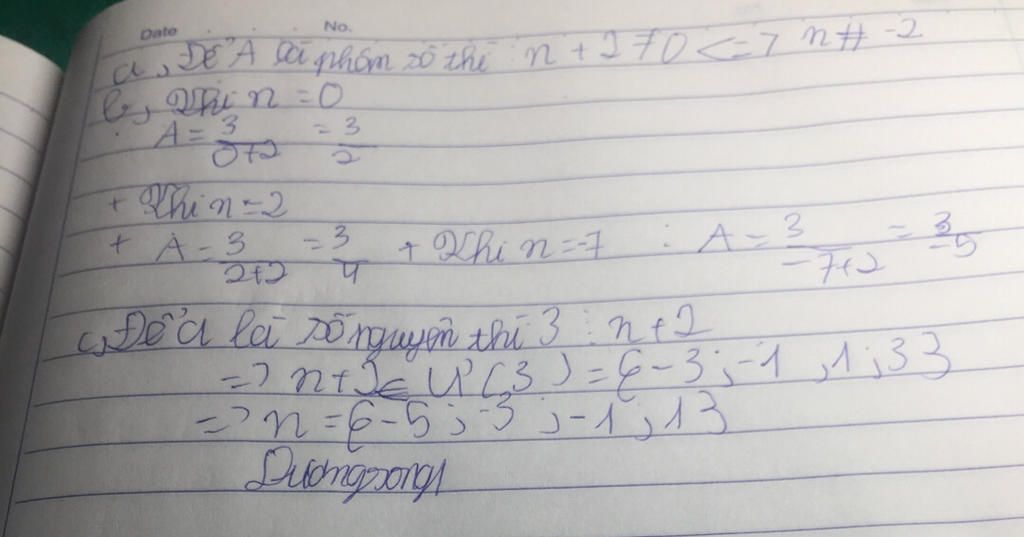 Date No.
a, Để A là phân số thì n + 2 ≠ 0 <=> n # -2
b, Khi n = 0
A = 3/0+2 = 3/2
+ Khi n = 2
+ A = 3/2+2 = 3/4 + Khi n = -7 : A = 3/-7+2 = 3/-5
c, Để a là số nguyên thì 3 ⋮ n+2
=> n+2 ∈ Ư(3) = {-3; -1, 1; 3}
=> n = {-5; -3; -1; 1}
Duongsong1